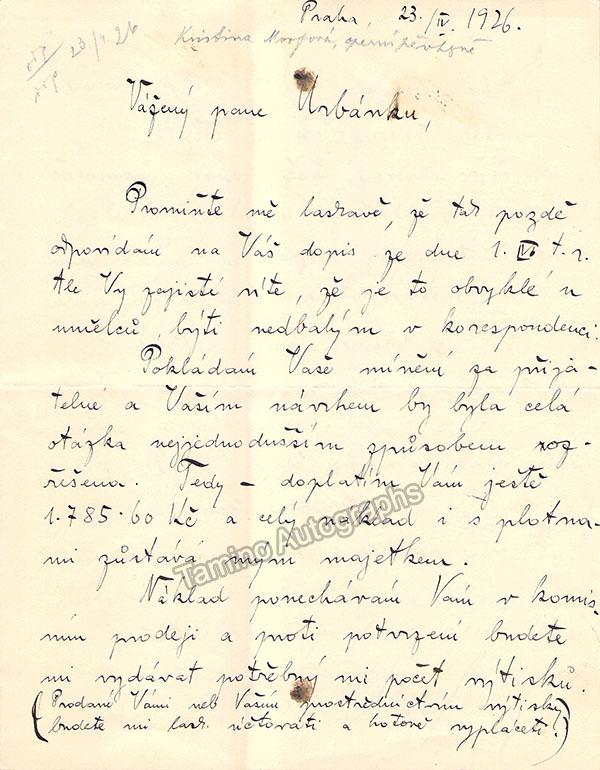 Praha, 23./IV. 1926.
23/4 26
Kristina Morfová, operní pěvkyně
Vážený pane Urbánku,
Promiňte mě laskavě, že tak pozdě
odpovídám na Váš dopis ze dne 1. IV t. r.
Ale Vy zajisté víte, že je to obvyklé u
umělců, býti nedbalým v korespondenci.
Pokládám Vaše mínění za přija-
telné a Vaším návrhem by byla celá
otázka nejjednodušším způsobem roz-
řešena. Tedy – doplatím Vám ještě
1.785.60 Kč a celý náklad i s plotna-
mi zůstává mým majetkem.
Náklad ponechávám Vám v komis-
ním prodeji a proti potvrzení budete
mi vydávat potřebný mi počet výtisků.
(Prodané Vámi neb Vaším prostřednictvím výtisky
budete mi lask. účtovati a hotově vypláceti.)
Tamino Autographs